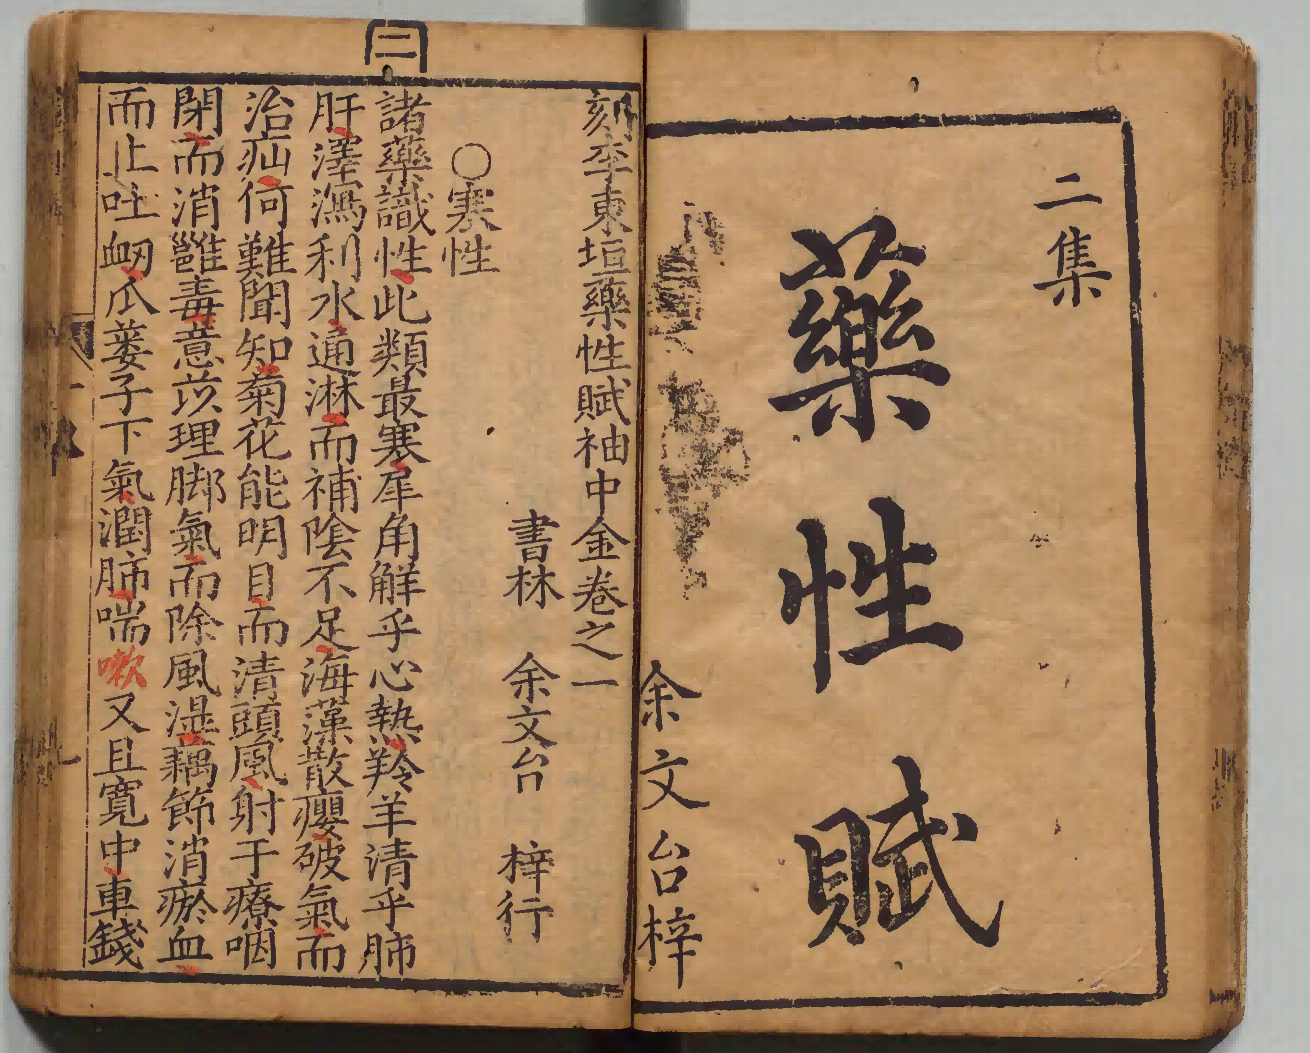 二集
藥性賦
余文台梓
二
刻李東垣藥性賦袖中金卷之一
書林 余文台 梓行
○寒性
諸藥識性此類最寒犀角解乎心熱羚羊清乎肺
肝澤瀉利水通淋而補陰不足海藻散癭破氣而
治疝何難聞知菊花能明目而清頭風射干療咽
閉而消雝毒薏苡理脚氣而除風濕藕節消瘀血
而止吐衂瓜蔞子下氣潤肺喘嗽又且寬中車錢